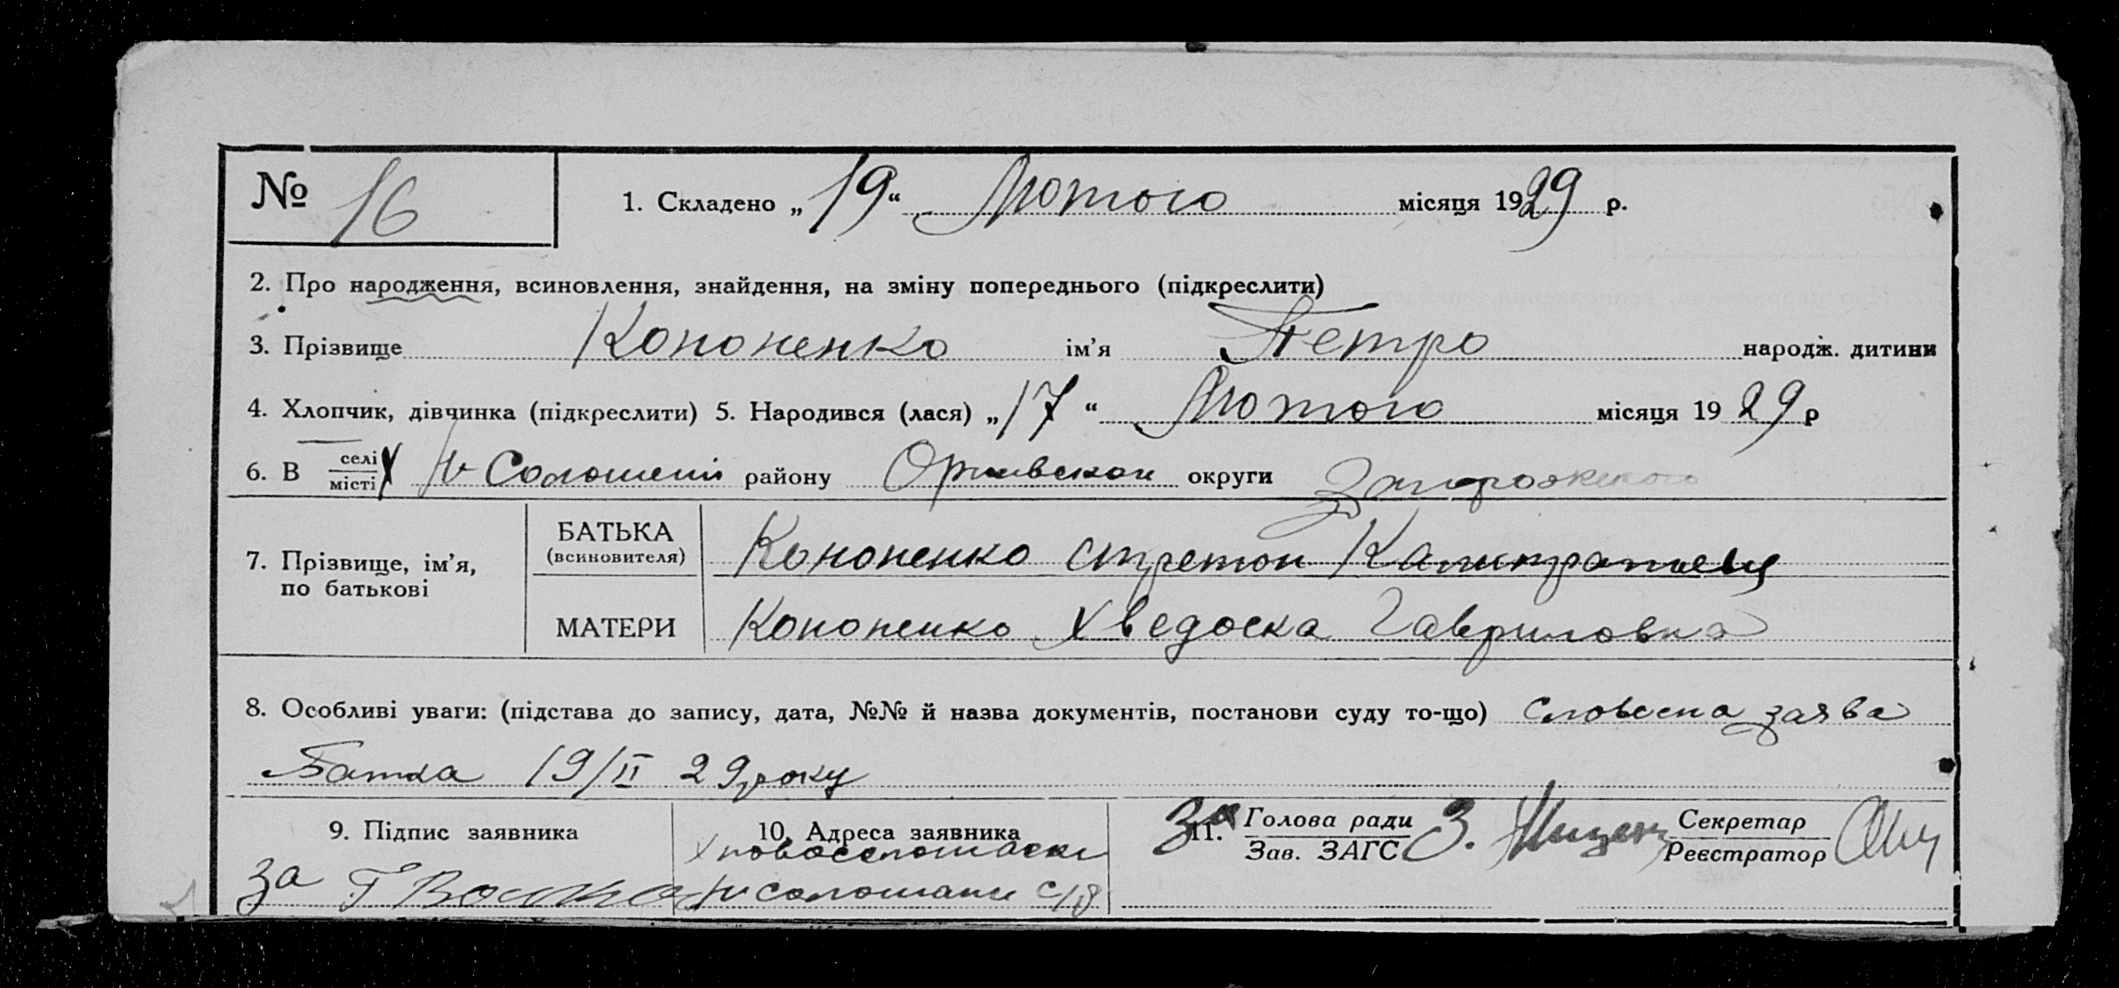 № 16 1. Складено „19“ Лютого місяця 1929 р.
2. Про народження, всиновлення, знайдення, на зміну попереднього (підкреслити)
3. Прізвище Кононенко ім’я Петро народж. дитини
4. Хлопчик, дівчинка (підкреслити) 5. Народився (лася) „17“ Лютого місяця 1929 р
6. В селі місті району округи Запорожского
7. Прізвище, ім’я, по батькові
БАТЬКА (всиновителя) Кононенко
МАТЕРИ Кононенко Хведоска Гавриловна
8. Особливі уваги: (підстава до запису, дата, №№ й назва документів, постанови суду то-що) Словесна заява
Батька 19/II 29 року
9. Підпис заявника 10. Адреса заявника За 11. Голова ради Зав. ЗАГС Секретар Реєстратор
за с/р